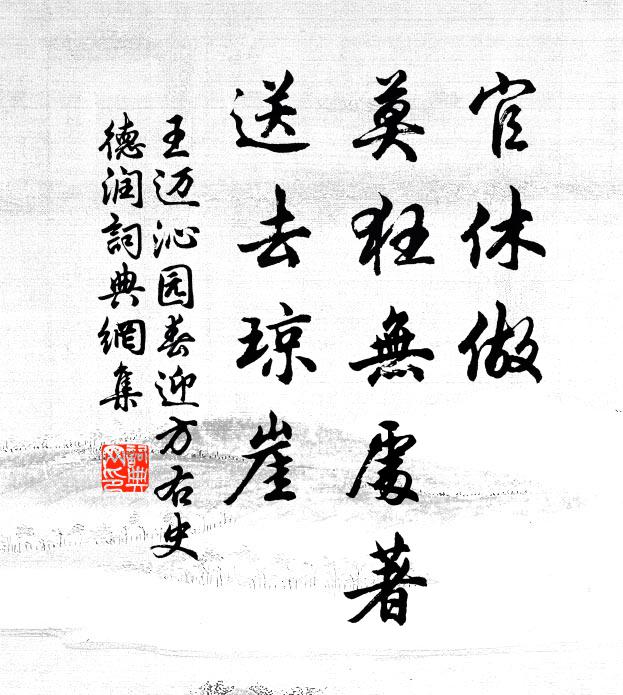 官休做
莫狂無處著
送去琼崖
王迈沁园春迎方右史
德润詞典網集
詞典网印